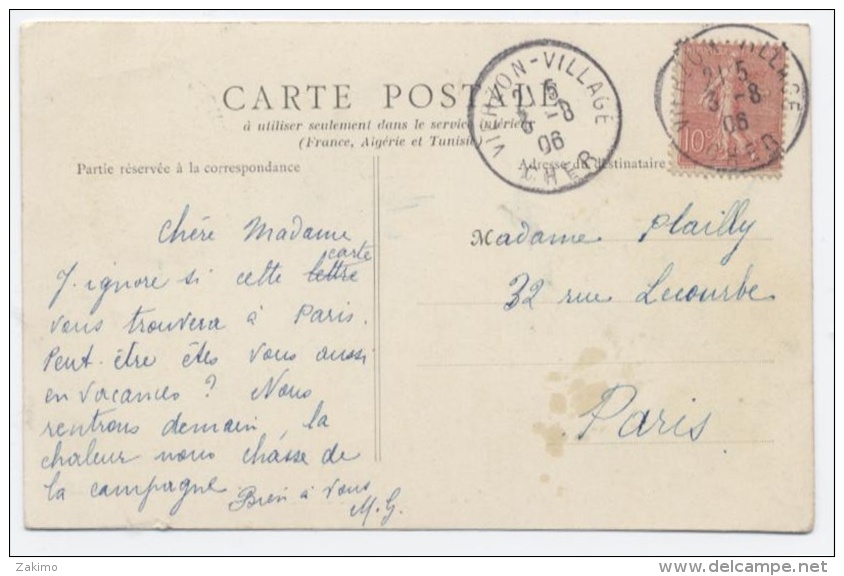 CARTE POSTALE
à utiliser seulement dans le service intérieur
(France, Algérie et Tunisie)
Partie réservée à la correspondance
Adresse du destinataire
VIERZON-VILLAGE
21 5
3 -8
06
CHER
VIERZON-VILLAGE
21 5
3 -8
06
CHER
10
Chère Madame
carte
J'ignore si cette lettre
vous trouvera à Paris.
Peut être êtes vous aussi
en vacances ? Nous
rentrons demain, la
chaleur nous chasse de
la campagne
Bien à vous
M.G.
Madame Plailly
32 rue Lecourbe
Paris
Zakimo
delcampe.net